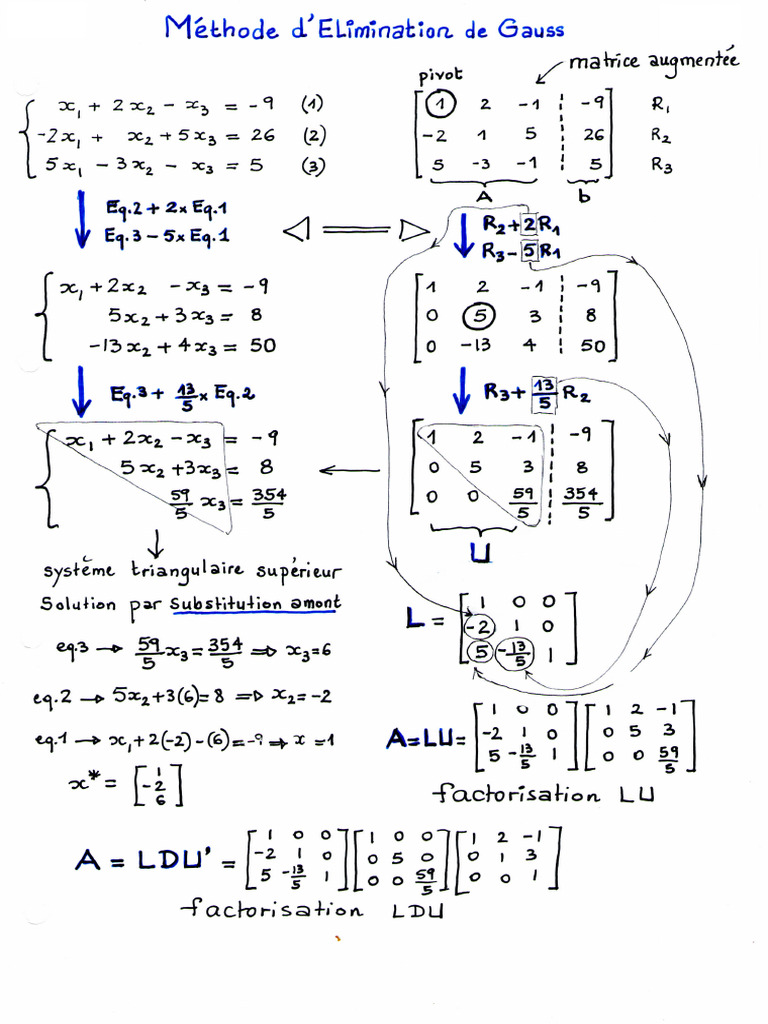 Méthode d'Elimination de Gauss
matrice augmentée
pivot
x₁ + 2x₂ - x₃ = -9 (1)
-2x₁ + x₂ + 5x₃ = 26 (2)
5x₁ - 3x₂ - x₃ = 5 (3)
1 2 -1 -9 R₁
-2 1 5 26 R₂
5 -3 -1 5 R₃
A b
Eq.2 + 2x Eq.1
Eq.3 - 5x Eq.1
R₂+2R₁
R₃-5R₁
x₁ + 2x₂ - x₃ = -9
5x₂ + 3x₃ = 8
-13x₂ + 4x₃ = 50
1 2 -1 -9
0 5 3 8
0 -13 4 50
Eq.3 + 13/5 x Eq.2
R₃ + 13/5 R₂
x₁ + 2x₂ - x₃ = -9
5x₂ + 3x₃ = 8
59/5 x₃ = 354/5
1 2 -1 -9
0 5 3 8
0 0 59/5 354/5
U
système triangulaire supérieur
Solution par Substitution amont
eq.3 → 59/5 x₃ = 354/5 ⇒ x₃=6
eq.2 → 5x₂+3(6)=8 ⇒ x₂=-2
eq.1 → x₁+2(-2)-(6)=-9 ⇒ x=1
x* = [1 -2 6]
L =
1 0 0
-2 1 0
5 -13/5 1
A=LU=
1 0 0 1 2 -1
-2 1 0 0 5 3
5 -13/5 1 0 0 59/5
factorisation LU
A = LDU' =
1 0 0 1 0 0 1 2 -1
-2 1 0 0 5 0 0 1 3
5 -13/5 1 0 0 59/5 0 0 1
factorisation LDU